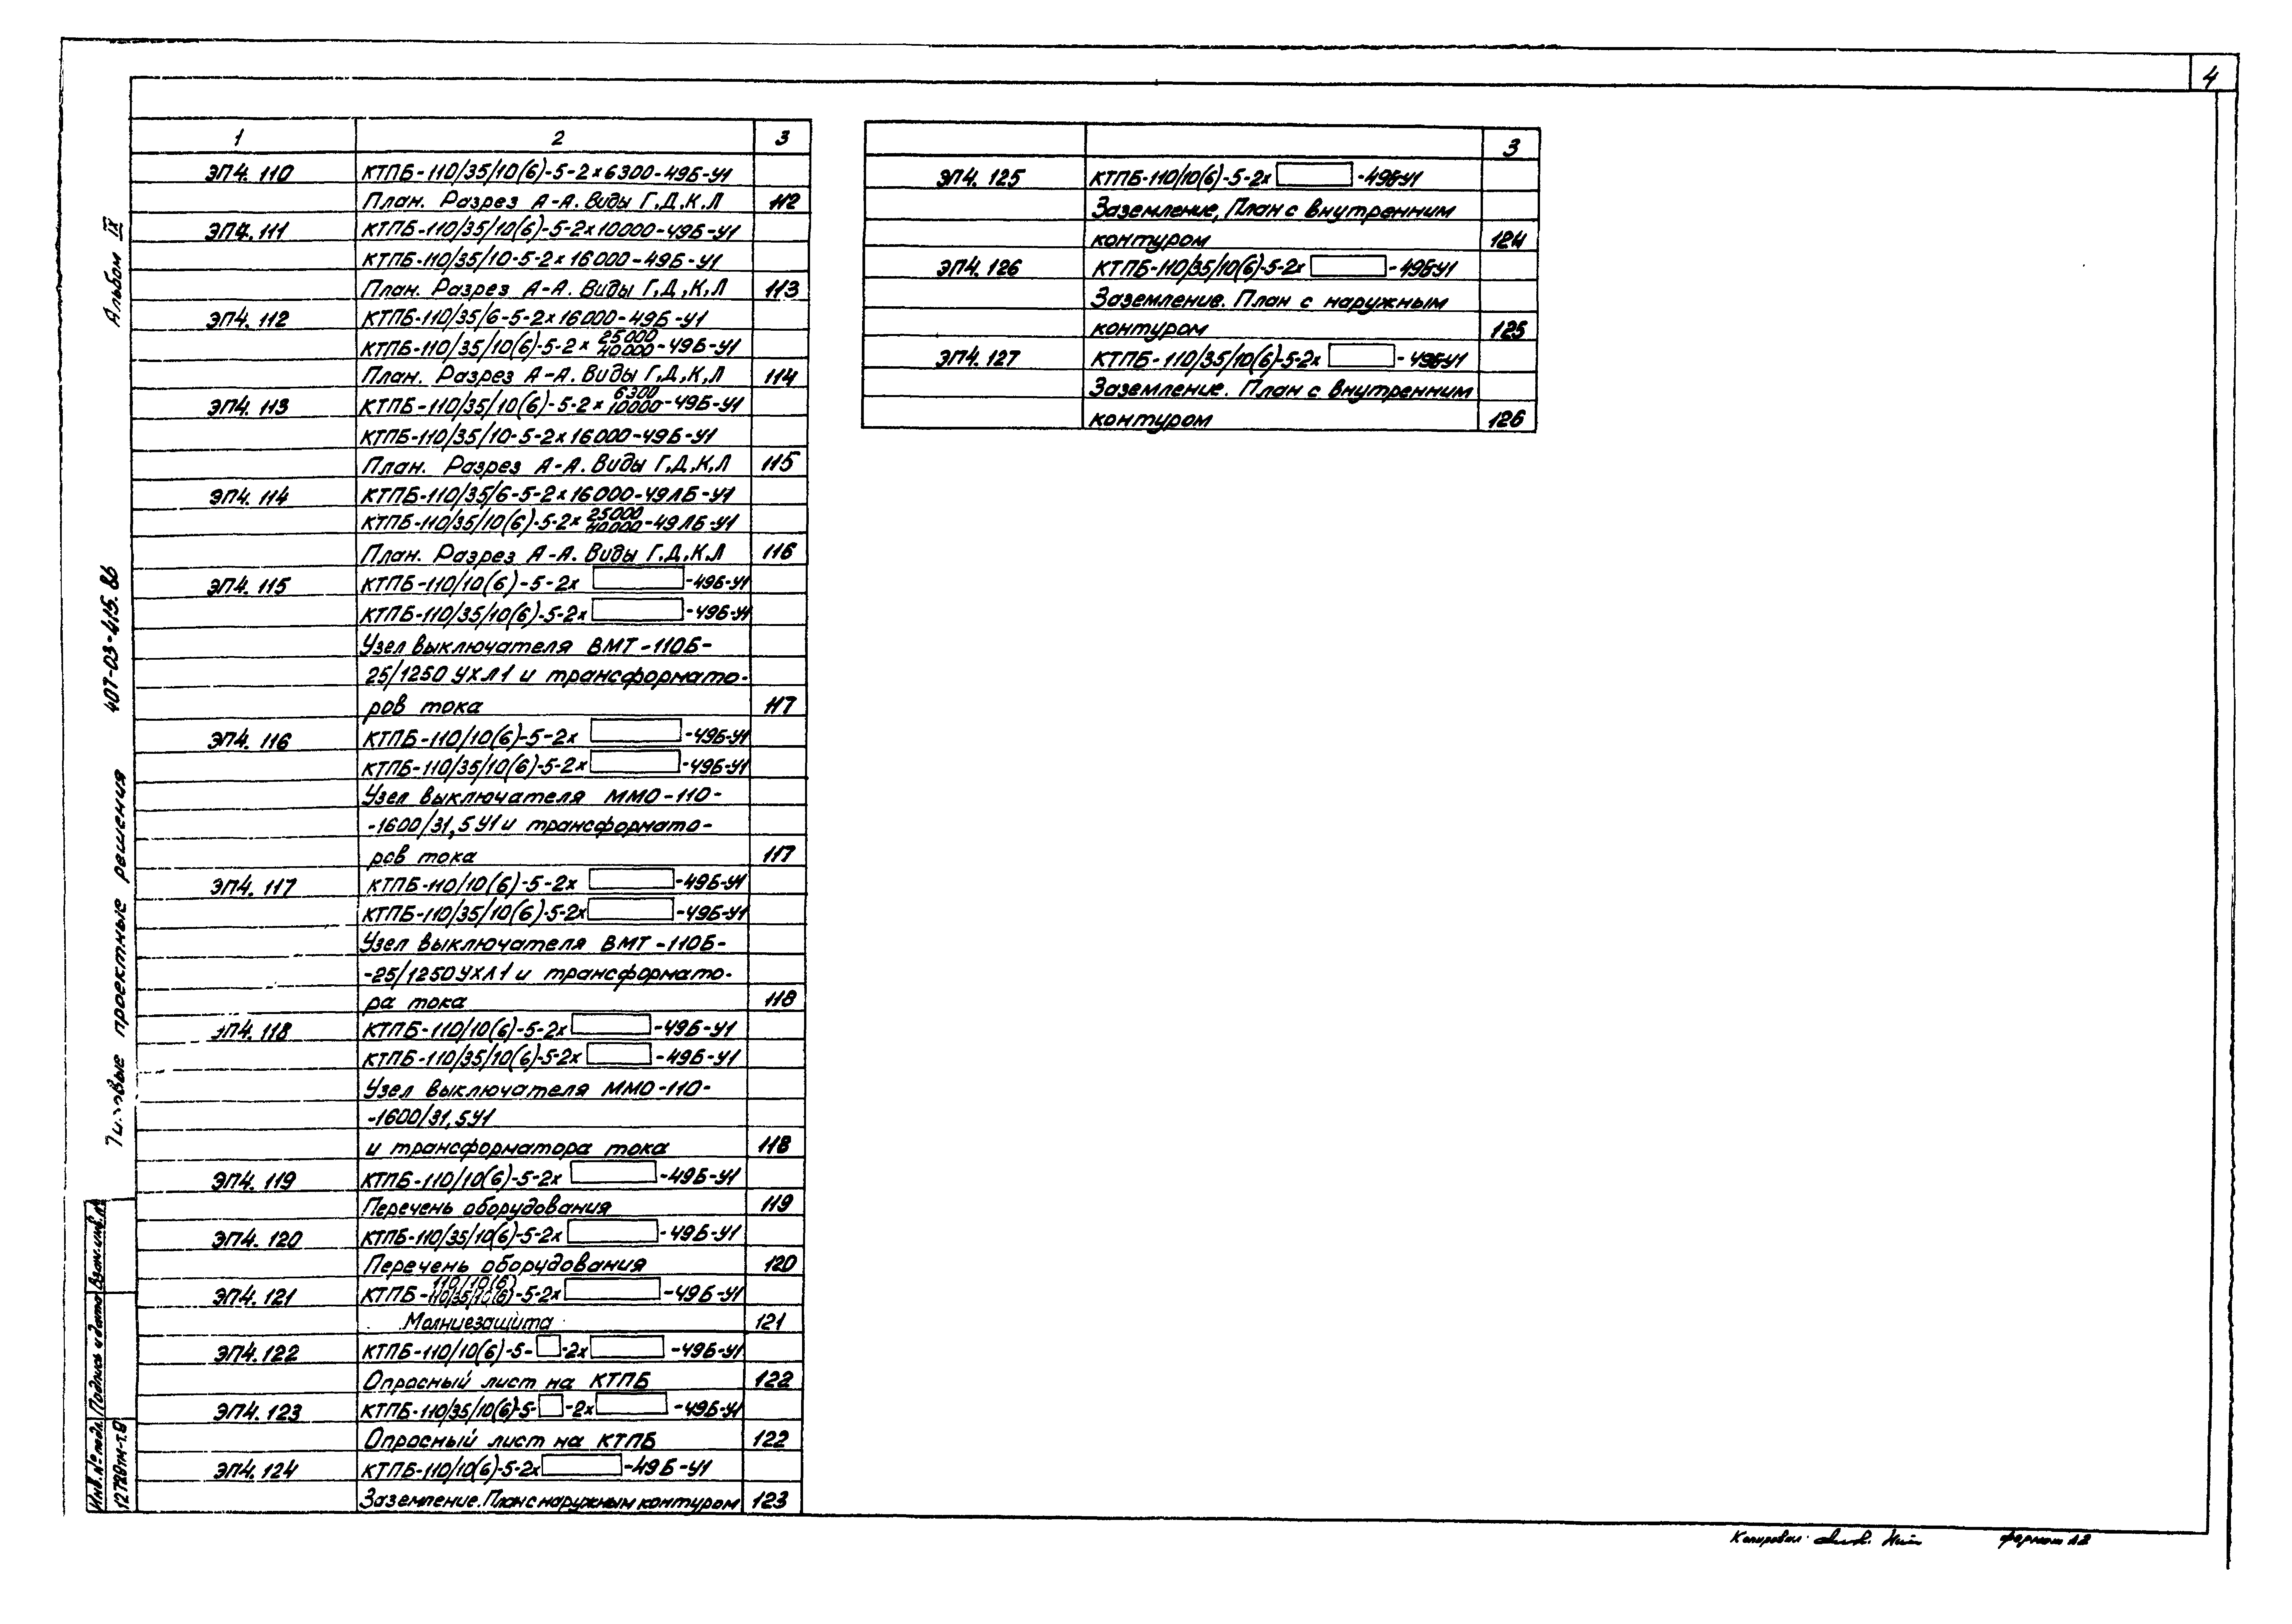 4
1 2 3
ЭП4.110 КТПБ-110/35/10(6)-5-2×6300-49Б-У1
План. Разрез А-А. Виды Г,Д,К,Л 112
ЭП4.111 КТПБ-110/35/10(6)-5-2×10000-49Б-У1
КТПБ-110/35/10-5-2×16000-49Б-У1
План. Разрез А-А. Виды Г,Д,К,Л 113
ЭП4.112 КТПБ-110/35/6-5-2×16000-49Б-У1
КТПБ-110/35/10(6)-5-2× 25000/40000-49Б-У1
План. Разрез А-А. Виды Г,Д,К,Л 114
ЭП4.113 КТПБ-110/35/10(6)-5-2× 6300/10000-49Б-У1
КТПБ-110/35/10-5-2×16000-49Б-У1
План. Разрез А-А. Виды Г,Д,К,Л 115
ЭП4.114 КТПБ-110/35/6-5-2×16000-49ЛБ-У1
КТПБ-110/35/10(6)-5-2× 25000/40000-49ЛБ-У1
План. Разрез А-А. Виды Г,Д,К,Л 116
ЭП4.115 КТПБ-110/10(6)-5-2× -49Б-У1
КТПБ-110/35/10(6)-5-2× -49Б-У1
Узел выключателя ВМТ-110Б-
25/1250 УХЛ1 и трансформато-
ров тока 117
ЭП4.116 КТПБ-110/10(6)-5-2× -49Б-У1
КТПБ-110/35/10(6)-5-2× -49Б-У1
Узел выключателя ММО-110-
-1600/31,5У1 и трансформато-
ров тока 117
ЭП4.117 КТПБ-110/10(6)-5-2× -49Б-У1
КТПБ-110/35/10(6)-5-2× -49Б-У1
Узел выключателя ВМТ-110Б-
-25/1250УХЛ1 и трансформато-
ра тока 118
ЭП4.118 КТПБ-110/10(6)-5-2× -49Б-У1
КТПБ-110/35/10(6)-5-2× -49Б-У1
Узел выключателя ММО-110-
-1600/31,5У1
и трансформатора тока 118
ЭП4.119 КТПБ-110/10(6)-5-2× -49Б-У1
Перечень оборудования 119
ЭП4.120 КТПБ-110/35/10(6)-5-2× -49Б-У1
Перечень оборудования 120
ЭП4.121 КТПБ- 110/10(6)/110/35/10(6)-5-2× -49Б-У1
Молниезащита 121
ЭП4.122 КТПБ-110/10(6)-5- -2× -49Б-У1
Опросный лист на КТПБ 122
ЭП4.123 КТПБ-110/35/10(6)-5- -2× -49Б-У1
Опросный лист на КТПБ 122
ЭП4.124 КТПБ-110/10(6)-5-2× -49Б-У1
Заземление. План с наружным контуром 123
3
ЭП4.125 КТПБ-110/10(6)-5-2× -49Б-У1
Заземление, План с внутренним
контуром 124
ЭП4.126 КТПБ-110/35/10(6)-5-2× -49Б-У1
Заземление. План с наружным
контуром 125
ЭП4.127 КТПБ-110/35/10(6)-5-2× -49Б-У1
Заземление. План с внутренним
контуром 126
Типовые проектные решения 407-03-415.86 Альбом IX
Инв.№ подл. Подпись и дата Взам.инв.№
Копировал: формат А2